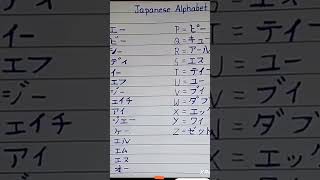 Japanese Alphabet
エー
ビー
シー
ディ
イー
エフ
ジー
エイチ
アイ
ジェー
ケー
エル
エム
エヌ
オー
P = ピー
Q = キュー
R = アール
S = エス
T = ティー
U = ユー
V = ブイ
W = ダブ
X = エッ
Y = ワイ
Z = ゼット